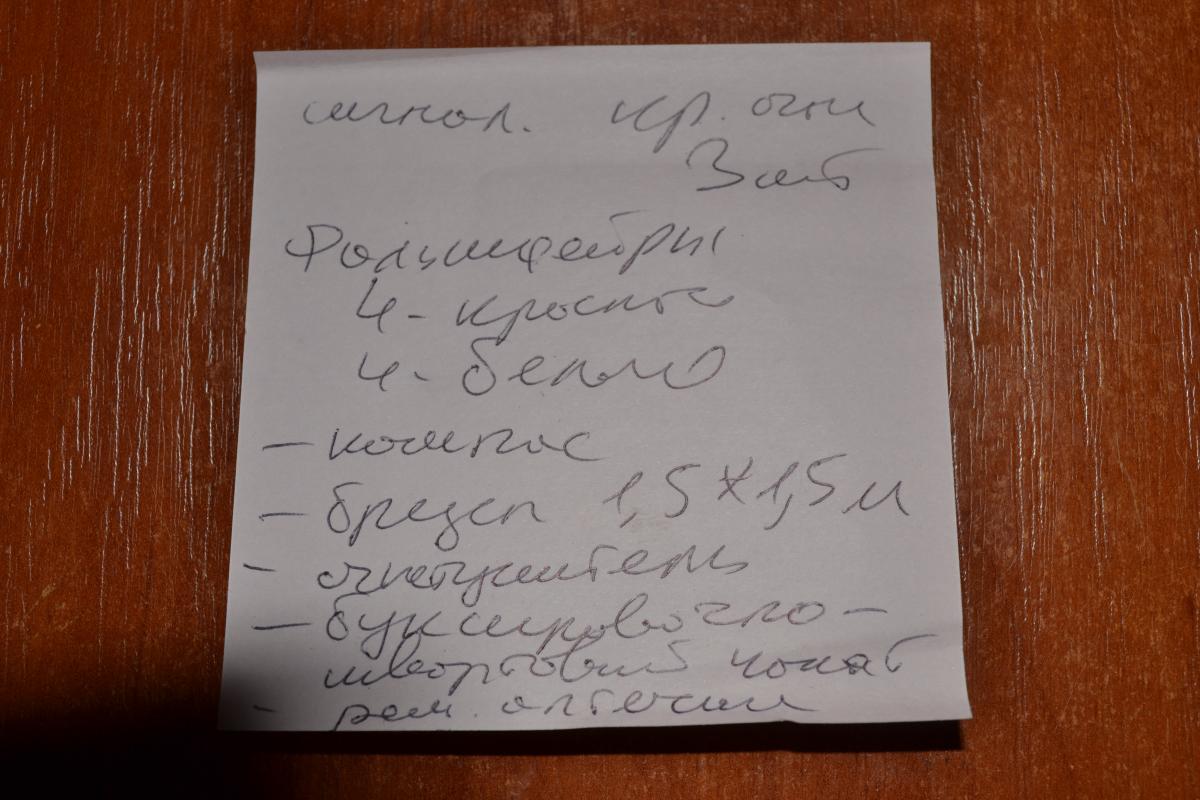 сигнал. кр. огни
3 шт
Фальшфейры
4 - красных
4 - белых
- компас
- брезент 1,5*1,5 м
- огнетушитель
- буксировочно -
швартовый канат
- рем. аптечки